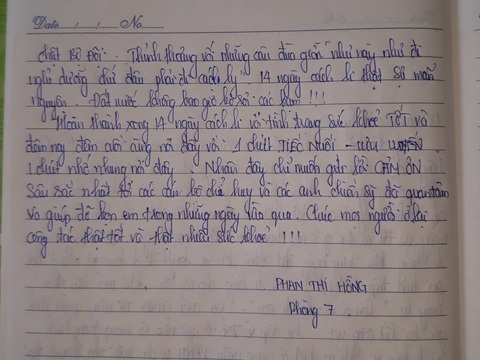 Date : : No
chất Bộ Đội. Thỉnh thoảng với những câu đùa giỡn "như này như đi
nghỉ dưỡng chứ đâu phải đi cách ly", 14 ngày cách li thật sự mãn
nguyện. Đất nước không bao giờ bỏ rơi các bạn !!!
Hoàn thành xong 14 ngày cách li với tình trạng sức khoẻ TỐT và
đêm nay đêm cuối cùng nơi đây với 1 chút TIẾC NUỐI - LƯU LUYẾN.
1 chút nhớ nhung nơi đây. Nhân đây chỉ muốn gửi lời CẢM ƠN
sâu sắc nhất tới các cán bộ chỉ huy và các anh chiến sỹ đã quan tâm
và giúp đỡ bọn em trong những ngày vừa qua. Chúc mọi người ở lại
công tác thật tốt và thật nhiều sức khoẻ !!!
PHAN THỊ HỒNG
Phòng 7